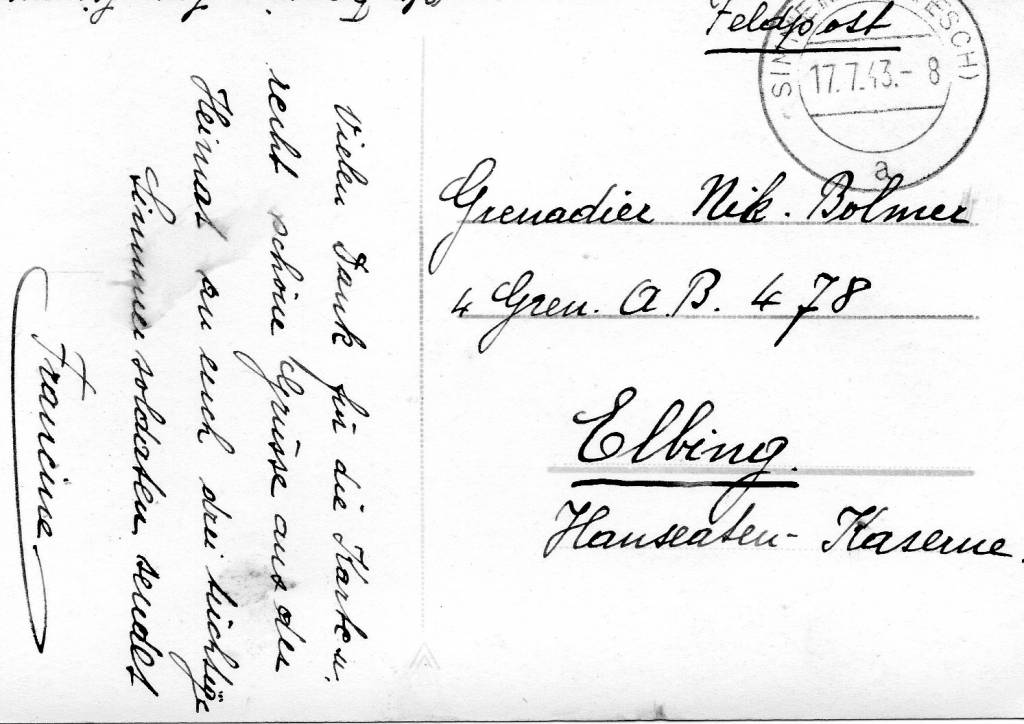 Feldpost
17.7.43.-8
a
Grenadier Nik. Bolmer
4 Gren. A.B. 478
Elbing.
Hanseaten-Kaserne.
Vielen Dank für die Karte u.
recht schöne Grüsse aus der
Heimat an euch drei tüchtige
Simmersoldaten sendet
Francine